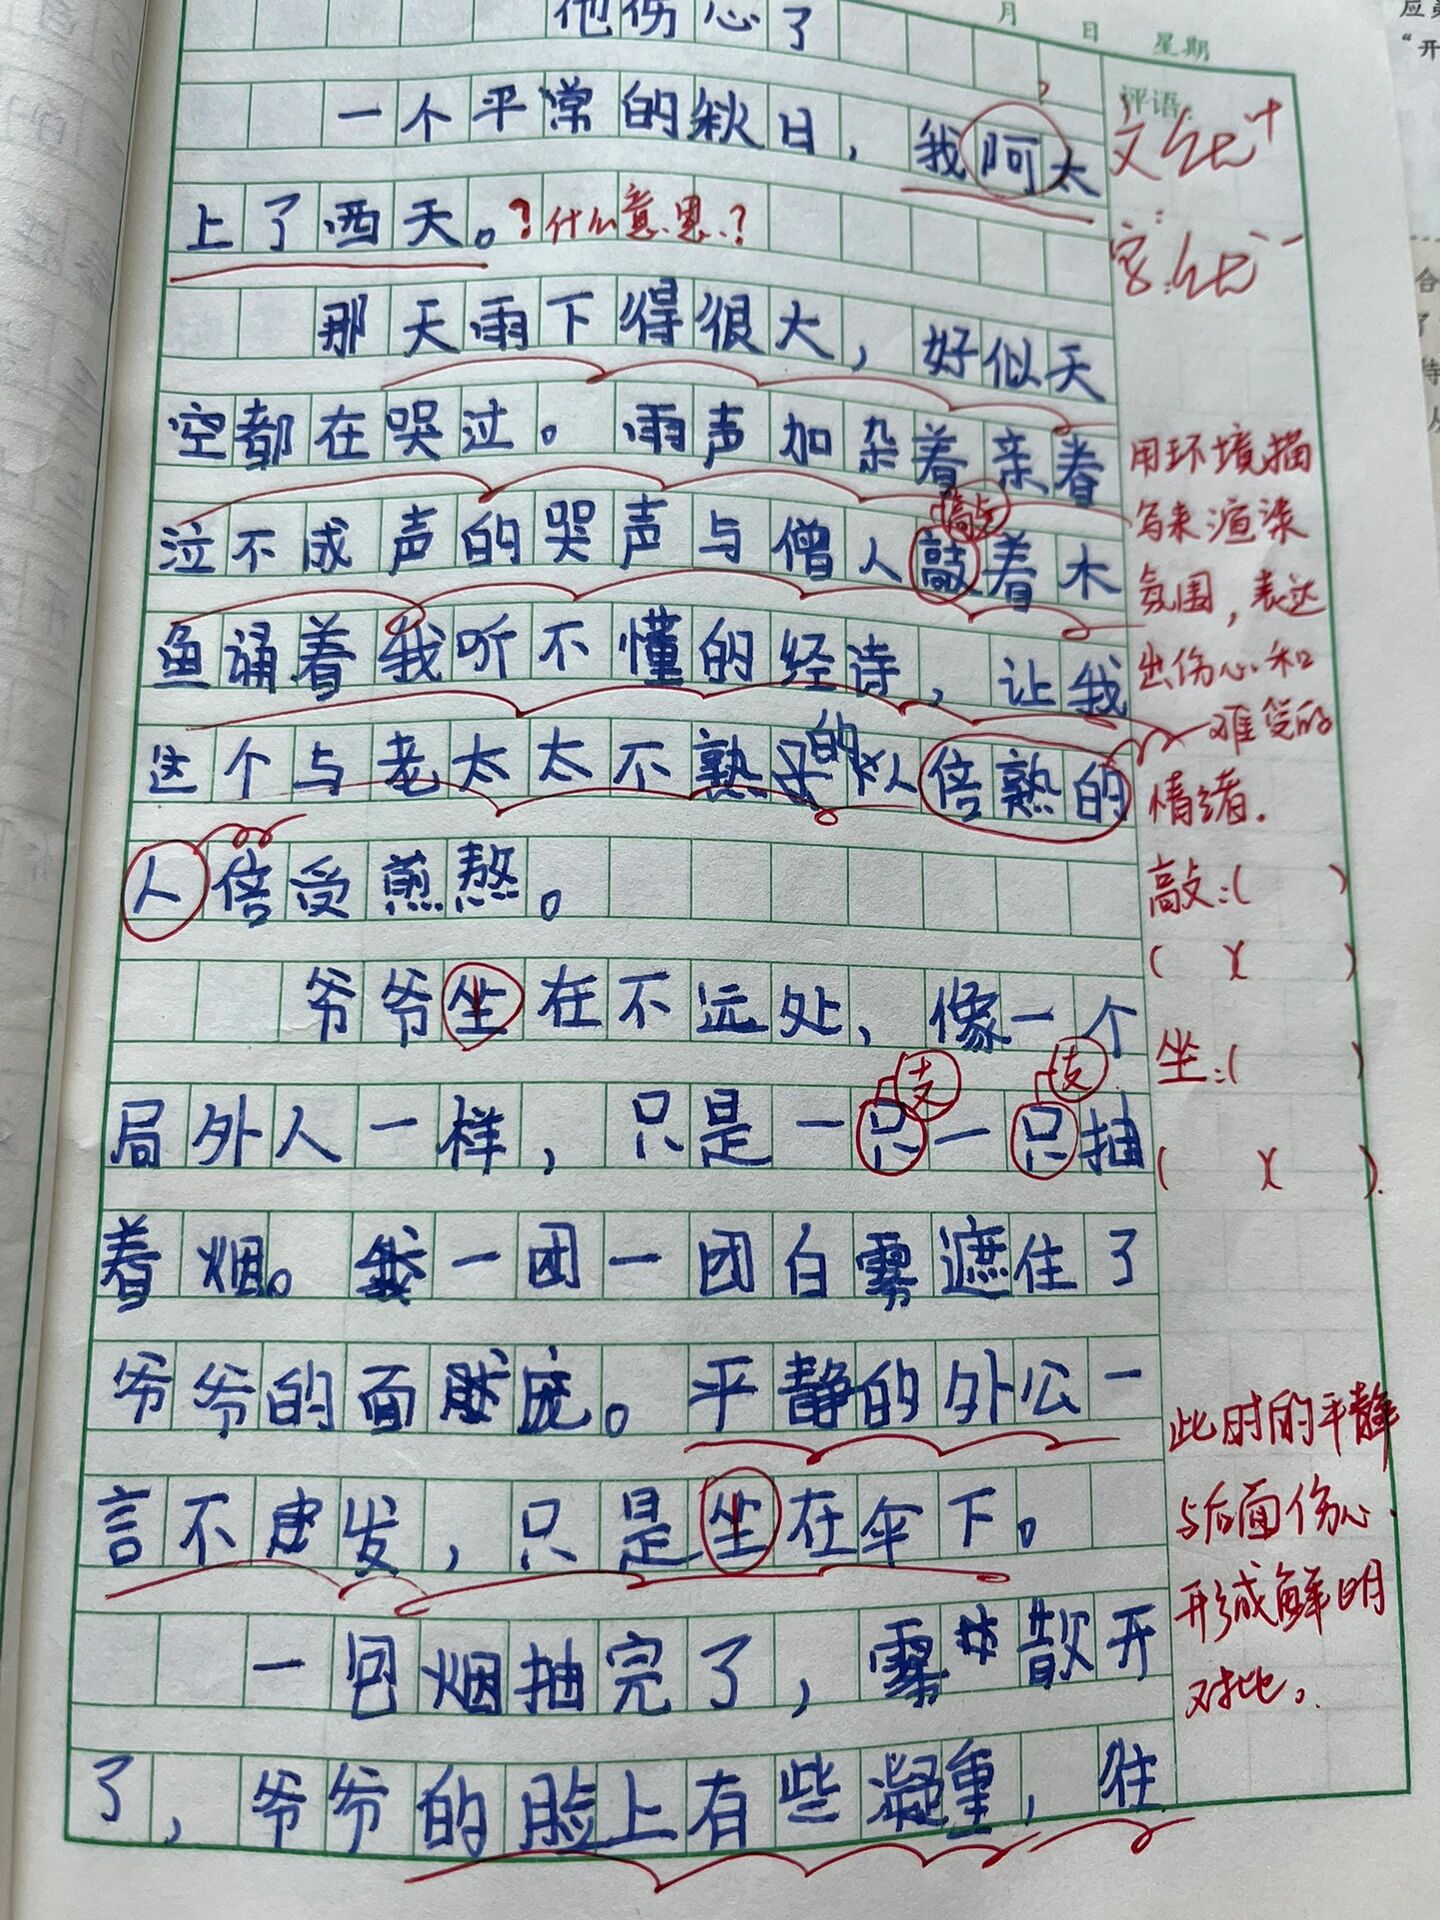 他伤心了
月 日 星期
评语:
一个平常的秋日，我阿太
文:优+
上了西天。？什么意思？
字:优--
那天雨下得很大，好似天
空都在哭过。雨声加杂着亲眷
用环境描
泣不成声的哭声与僧人敲着木
敲
写来渲染
氛围，表达
鱼诵着我听不懂的经诗，让我
出伤心和
这个与老太太不熟的人倍熟的
难受的
情绪.
人倍受煎熬。
敲:( )
( )( )
爷爷坐在不远处，像一个
坐:( )
支 支
局外人一样，只是一只一只抽
( )( ).
着烟。一团一团白雾遮住了
爷爷的面庞。平静的外公一
此时的平静
言不发，只是坐在伞下。
与后面伤心
形成鲜明
一包烟抽完了，雾散开
对比。
了，爷爷的脸上有些凝重，往